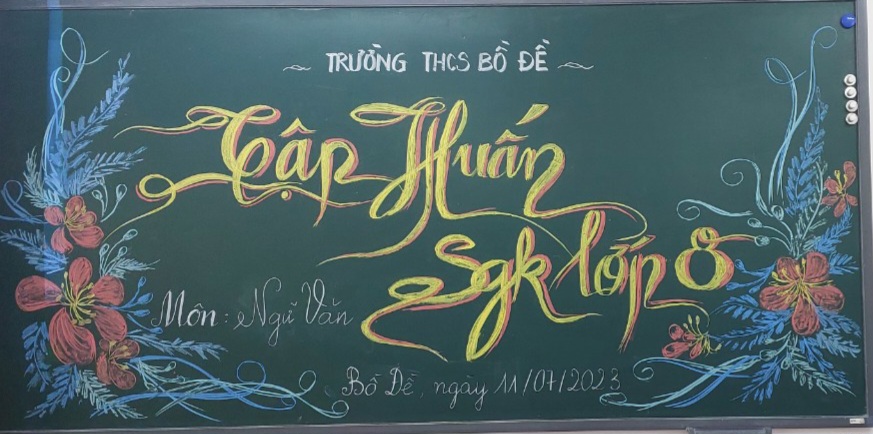 ~ TRƯỜNG THCS BỒ ĐỀ ~
Tập Huấn
Sgk lớp 8
Môn: Ngữ Văn
Bồ Đề, ngày 11/07/2023